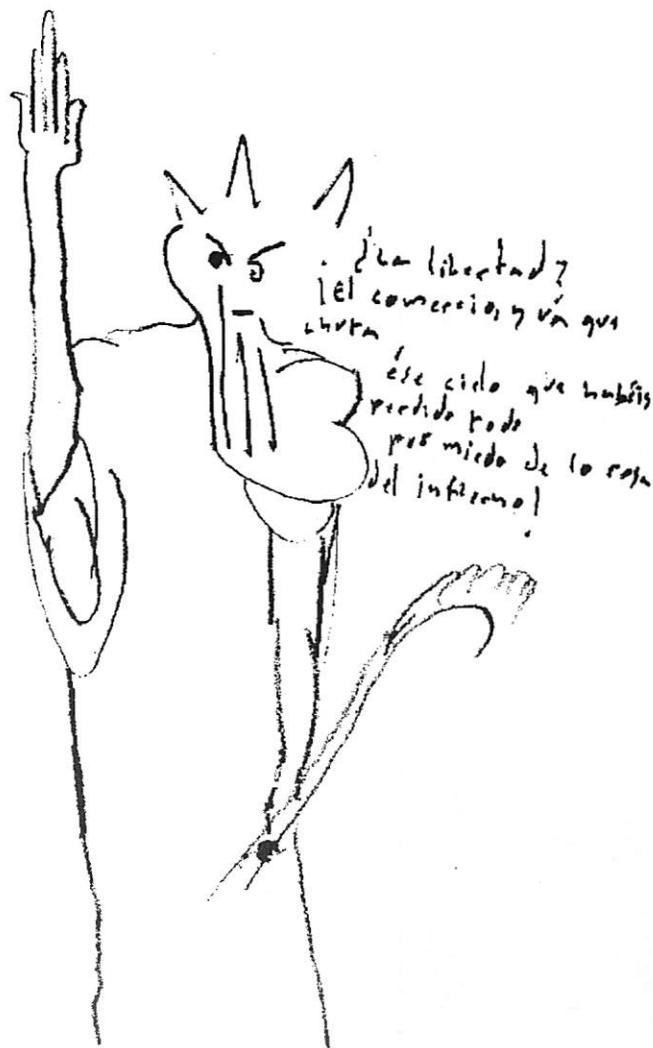 ¿La libertad?
¡El comercio, y va que
chuta
ése cielo que habéis
perdido todo
por miedo de lo rojo
del infierno!